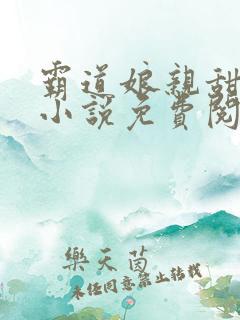 霸道娘親甜
小說免費閱
樂天茵
未經同意禁止轉載